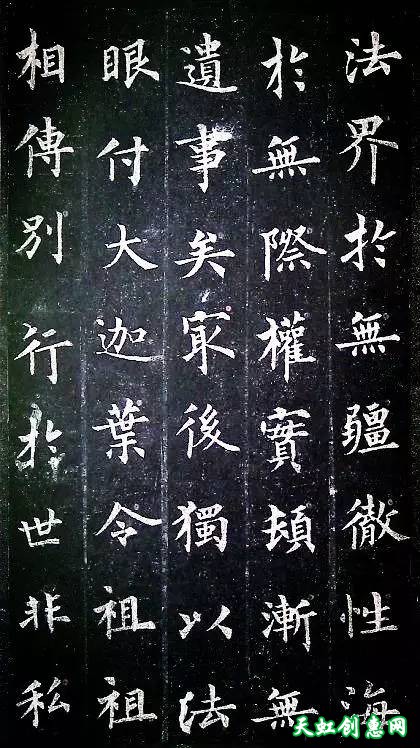 法界於無疆徹性海
於無際權實頓漸無
遺事矣㝡後獨以法
眼付大迦葉令祖祖
相傳別行於世非私
天虹创意网